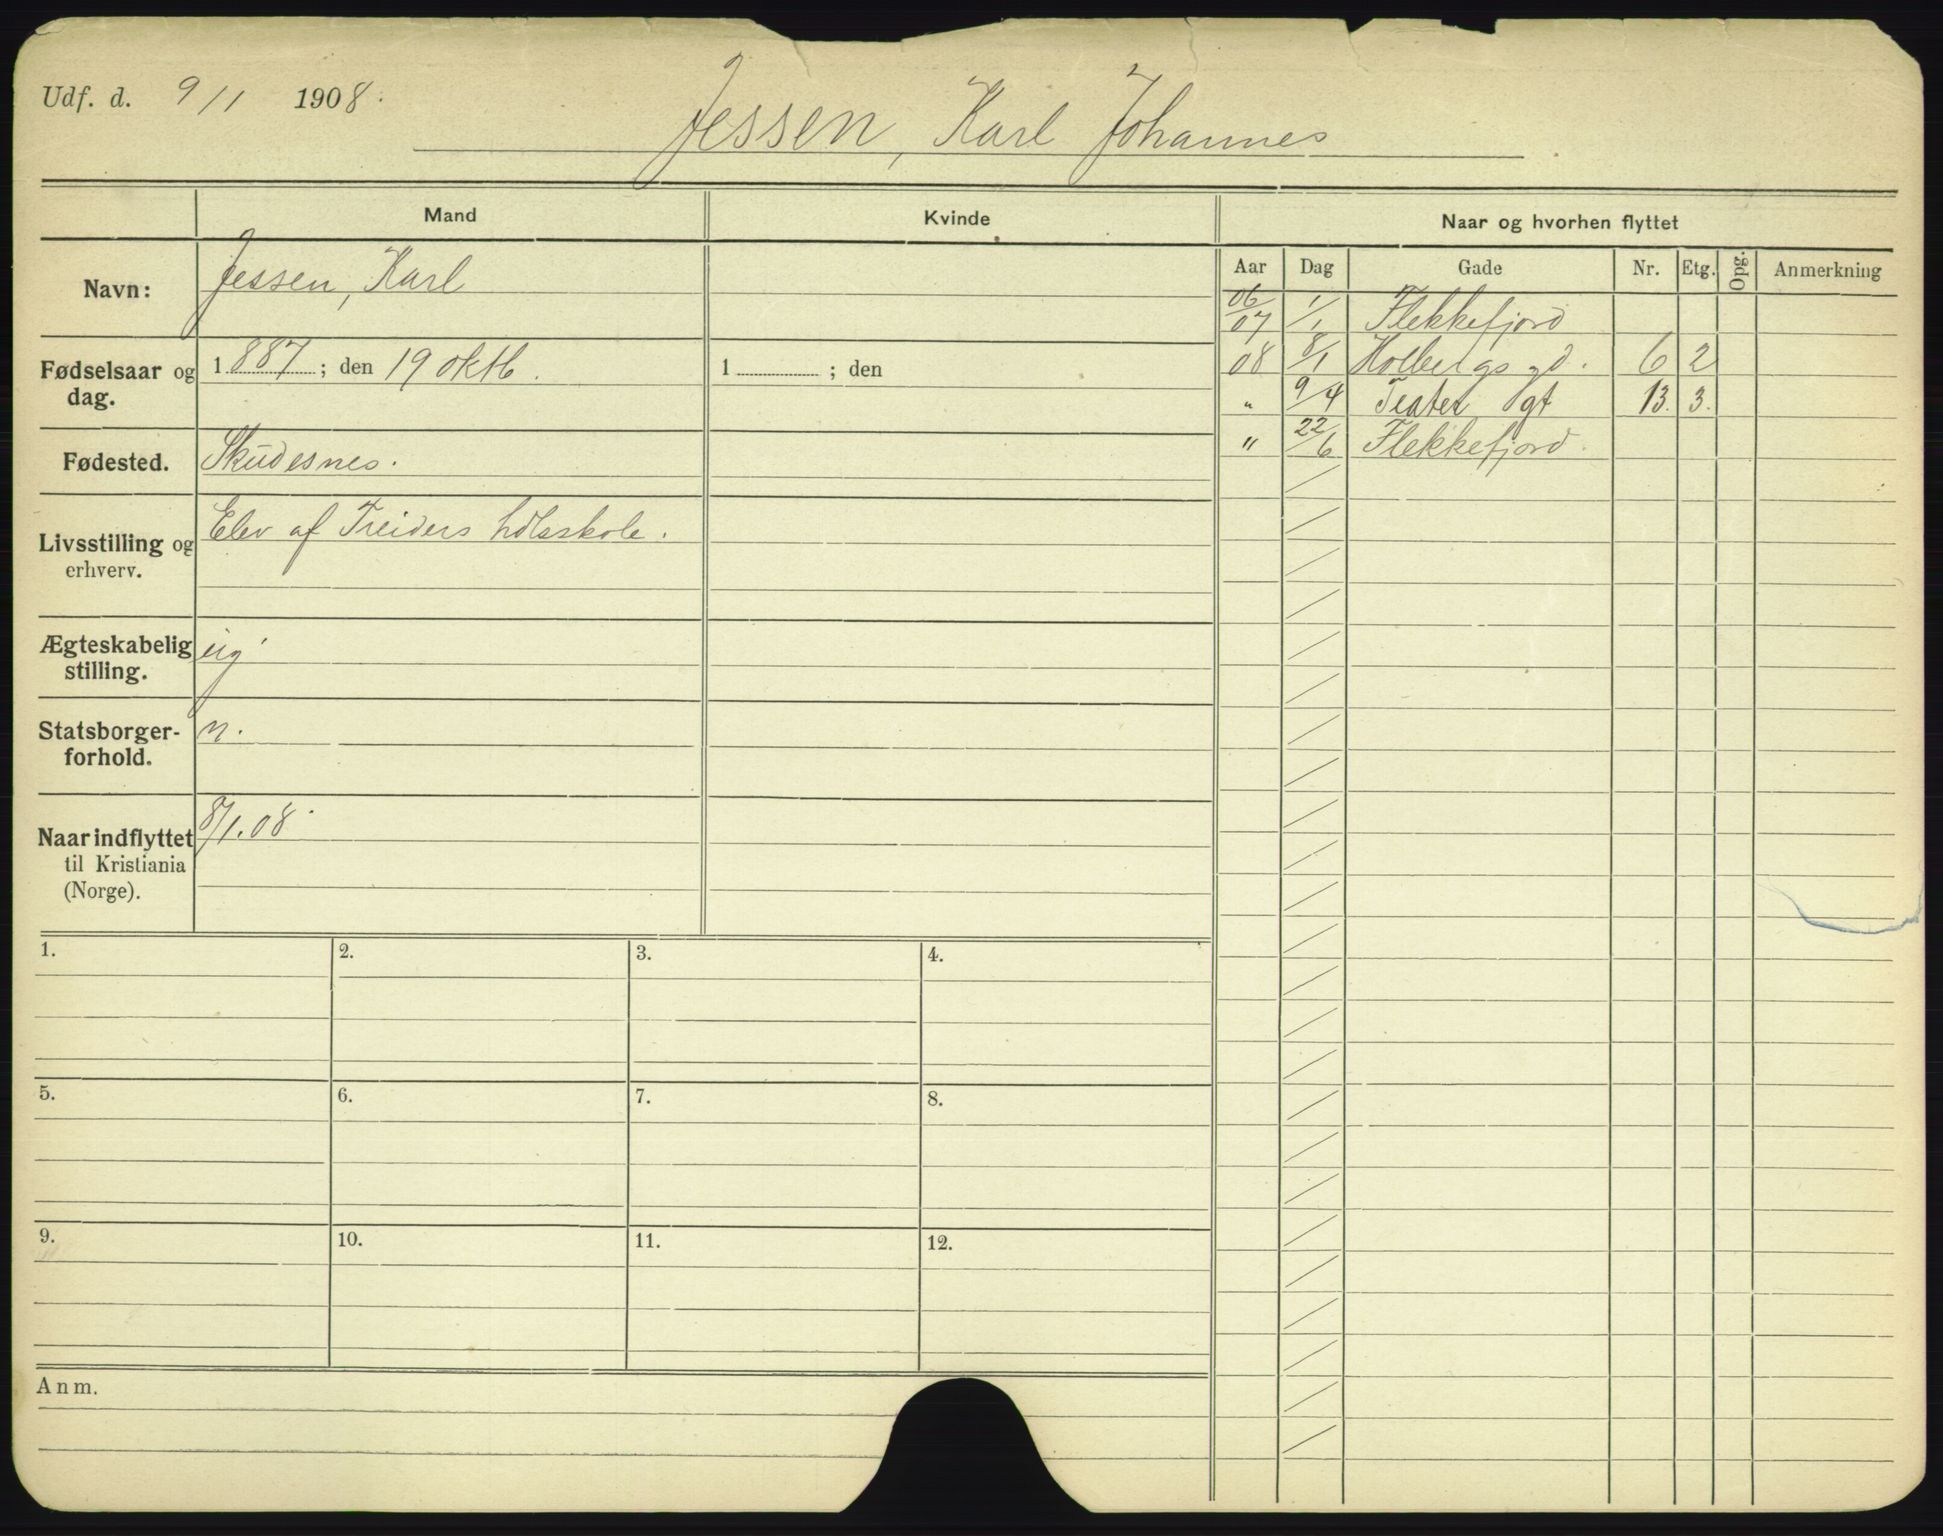 Udf. d. 9/1 1908.
Jessen, Karl Johannes
Mand
Kvinde
Naar og hvorhen flyttet
Navn: Jessen, Karl
Aar Dag Gade Nr. Etg. Opg. Anmerkning
06/07 1/1 Flekkefjord
Fødselsaar og dag. 1887; den 19 oktb. 1 ; den
08 8/1 Holbergs gd. 6 2
" 9/4 Teater gt 13. 3.
" 22/6 Flekkefjord.
Fødested. Skudesnes.
Livsstilling og erhverv. Elev af Treiders hdlsskole.
Ægteskabelig stilling. ug
Statsborgerforhold. n.
Naar indflyttet til Kristiania (Norge). 8/1.08.
1. 2. 3. 4.
5. 6. 7. 8.
9. 10. 11. 12.
Anm.